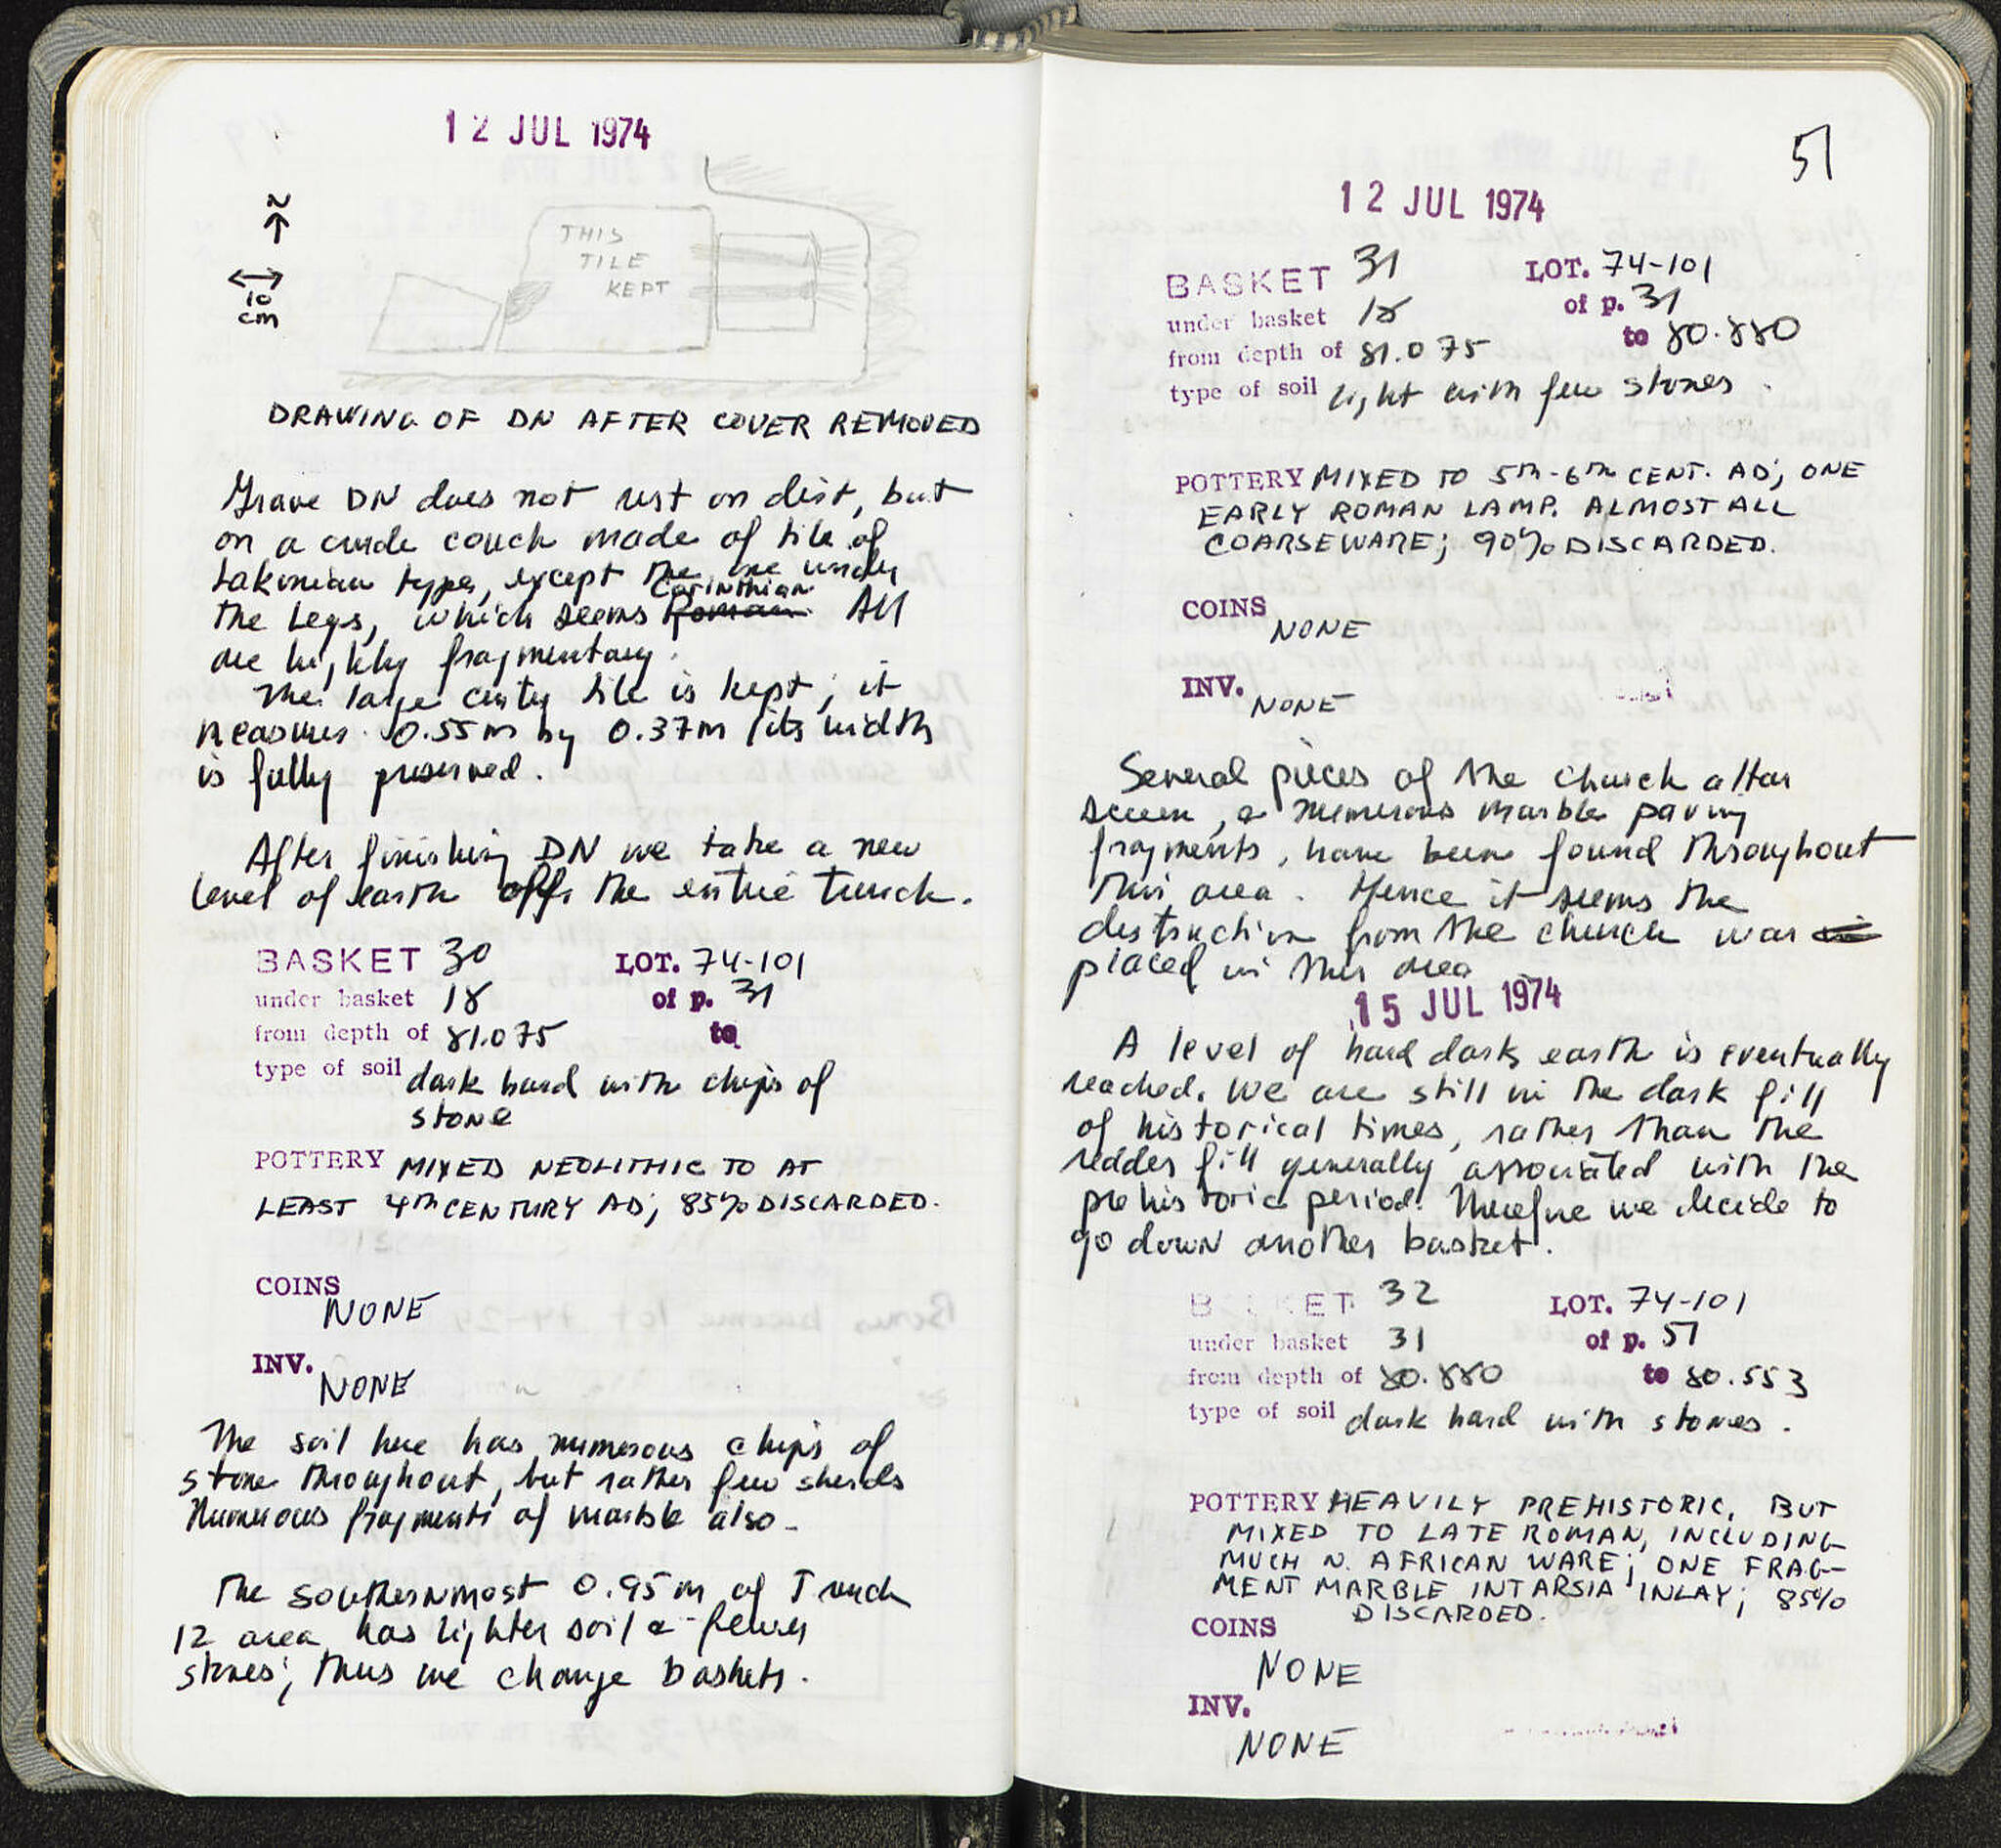 12 JUL 1974
N
10
cm
THIS
TILE
KEPT
DRAWING OF DN AFTER COVER REMOVED
Grave DN does not rest on dirt, but
on a crude couch made of tile of
Lakonian type, except the one under
Corinthian
the legs, which seems Roman. All
are highly fragmentary.
The large center tile is kept; it
measures 0.55m by 0.37m (its width
is fully preserved.
After finishing DN we take a new
level of earth off the entire trench.
BASKET 30 LOT. 74-101
under basket 18 of p. 31
from depth of 81.075 to
type of soil dark hard with chips of
stone
POTTERY MIXED NEOLITHIC TO AT
LEAST 4TH CENTURY AD; 85% DISCARDED.
COINS
NONE
INV.
NONE
The soil here has numerous chips of
stone throughout, but rather few sherds
Numerous fragments of marble also.
The southernmost 0.95m of Trench
12 area has lighter soil & fewer
stones; thus we change baskets.
51
12 JUL 1974
BASKET 31 LOT. 74-101
under basket 18 of p. 31
from depth of 81.075 to 80.880
type of soil light with few stones.
POTTERY MIXED TO 5TH-6TH CENT. AD; ONE
EARLY ROMAN LAMP. ALMOST ALL
COARSEWARE; 90% DISCARDED.
COINS
NONE
INV.
NONE
Several pieces of the church altar
screen, & numerous marble paving
fragments, have been found throughout
this area. Hence it seems the
destruction from the church was
placed in this area
15 JUL 1974
A level of hard dark earth is eventually
reached. We are still in the dark fill
of historical times, rather than the
redder fill generally associated with the
prehistoric period. Therefore we decide to
go down another basket.
BASKET 32 LOT. 74-101
under basket 31 of p. 51
from depth of 80.880 to 80.553
type of soil dark hard with stones.
POTTERY HEAVILY PREHISTORIC, BUT
MIXED TO LATE ROMAN, INCLUDING
MUCH N. AFRICAN WARE; ONE FRAG-
MENT MARBLE INTARSIA INLAY; 85%
DISCARDED.
COINS
NONE
INV.
NONE